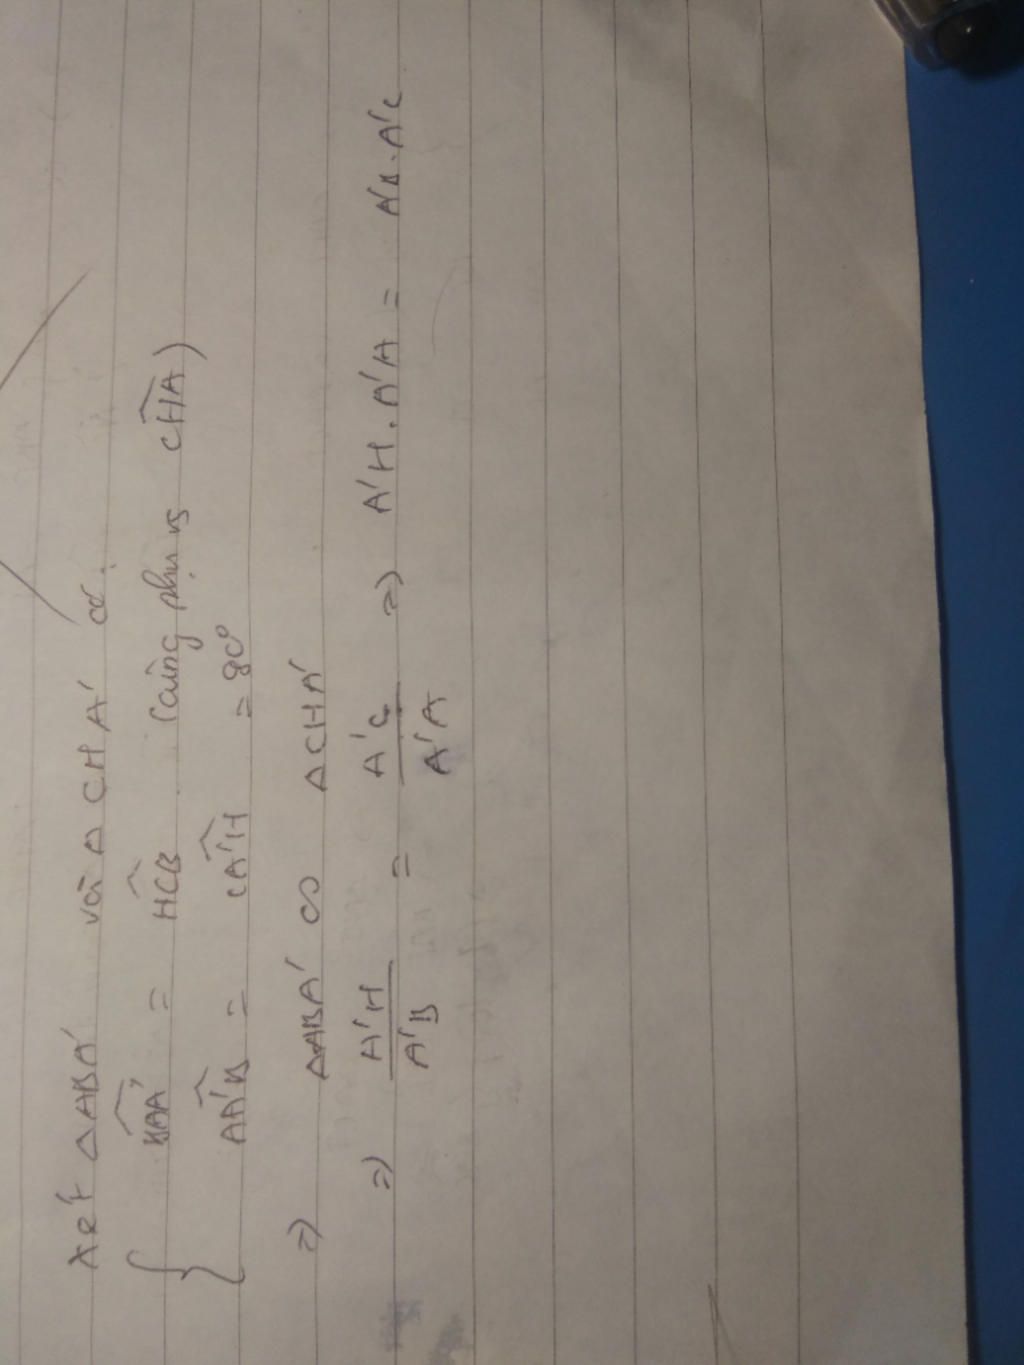 Xét ΔABA' và ΔCHA' có:
{ BAA' = HCB (cùng phụ vs CHA)
AA'B = CA'H = 90°
=> ΔABA' ∽ ΔCHA'
=> A'H/A'B = A'C/A'A => A'H.A'A = A'B.A'C